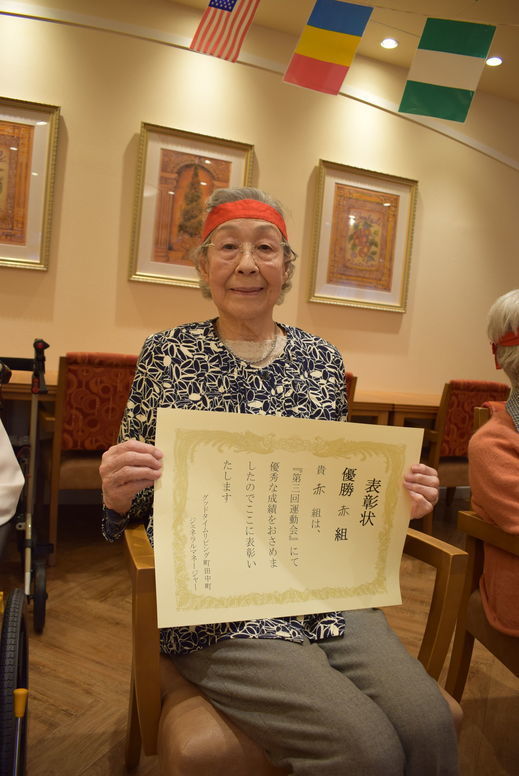 表彰状
優勝 赤 組
貴 赤 組は、
『第三回運動会』にて
優秀な成績をおさめま
したのでここに表彰い
たします
グッドタイムリビング町田中町
ジェネラルマネージャー